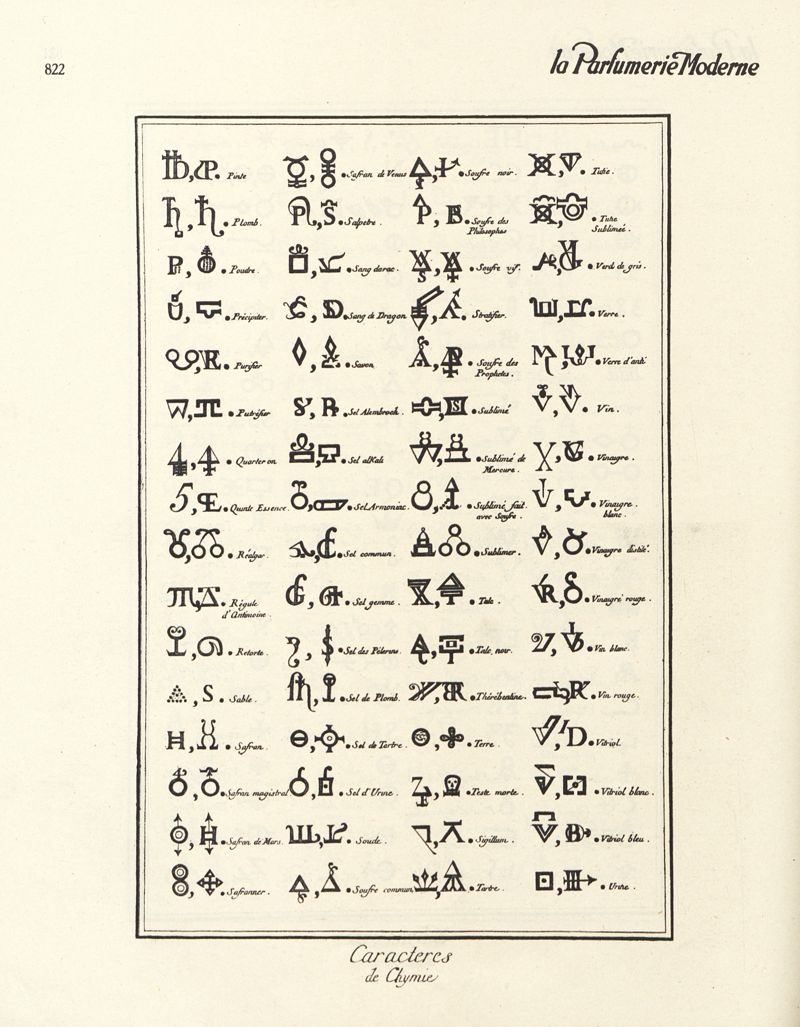 822
la Parfumerie Moderne
Pinte
Safran de Venus
Soufre noir.
Tutie.
Plomb.
Salpetre.
Soufre des
Philosophes
Tutie
Sublimée.
Poudre.
Sang darac.
Soufre vif.
Verd de gris.
Précipiter.
Sang de Dragon
Stratifier.
Verre.
Purifier
Savon
Soufre des
Prophetes.
Verre d'anti
Putrifier
Sel Alembrock.
Sublimé
Vin.
Quarteron
Sel alKali
Sublimé de
Mercure.
Vinaigre.
Quinte Essence.
Sel Armoniac.
Sublimé fait
avec Soufre.
Vinaigre
blanc.
Réalgar.
Sel commun.
Sublimer.
Vinaigre distilé.
Régule
d'Antimoine.
Sel gemme.
Talc.
Vinaigre rouge.
Retorte.
Sel des Pélerins.
Talc, noir.
Vin blanc.
Sable.
Sel de Plomb.
Thérébentine.
Vin rouge.
Safran.
Sel de Tartre.
Terre.
Vitriol.
Safran magistral
Sel d'Urine.
Teste morte.
Vitriol blanc.
Safran de Mars.
Soude.
Sigillum.
Vitriol bleu.
Safranner.
Soufre commun.
Tartre.
Urine.
Caracteres
de Chymie